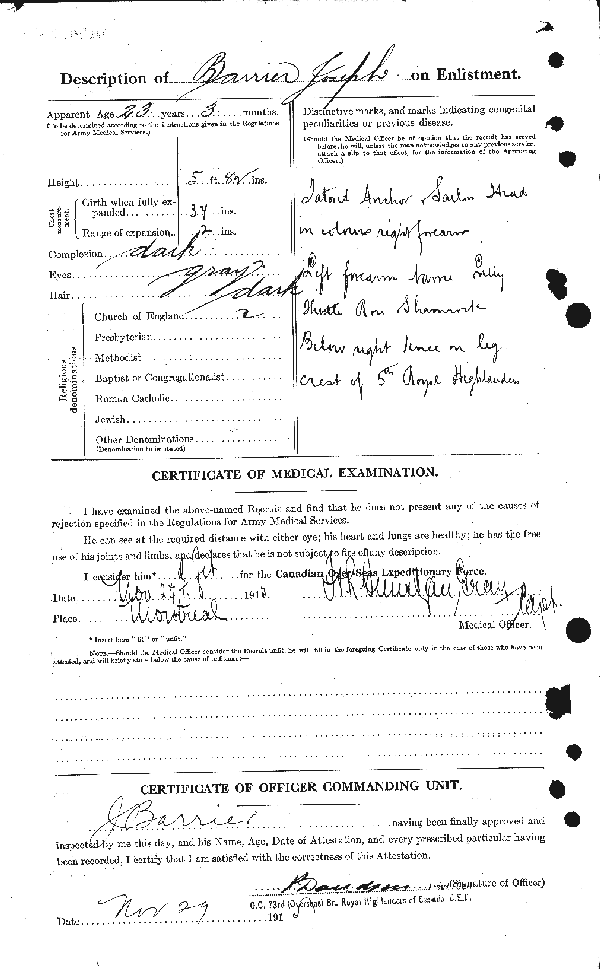 Description of Barrier Joseph on Enlistment.
Apparent Age 23 years 3 months.
(To be determined according to the instructions given in the Regulations for Army Medical Services.)
Height 5 ft. ins.
Chest measurement.
Girth when fully expanded 37 ins.
Range of expansion 2 ins.
Complexion dark
Eyes gray
Hair dark
Religious denominations.
Church of England
Presbyterian
Methodist
Baptist or Congregationalist
Roman Catholic
Jewish
Other Denominations
(Denomination to be stated.)
Distinctive marks, and marks indicating congenital
peculiarities or previous disease.
(Should the Medical Officer be of opinion that the recruit has served
before, he will, unless the man acknowledges to any previous service,
attach a slip to that effect, for the information of the Approving
Officer.)
Tatood Anchor & Sailor Head
in colours right forearm
Left forearm Name
Thistle Rose Shamrock
Below right knee on leg
crest of 5th Royal Highlanders
CERTIFICATE OF MEDICAL EXAMINATION.
I have examined the above-named Recruit and find that he does not present any of the causes of
rejection specified in the Regulations for Army Medical Services.
He can see at the required distance with either eye; his heart and lungs are healthy; he has the free
use of his joints and limbs, and declares that he is not subject to fits of any description.
I consider him* fit for the Canadian Over-Seas Expeditionary Force.
Date Nov 191
Place Montreal
Medical Officer.
* Insert here "fit" or "unfit."
NOTE.—Should the Medical Officer consider the Recruit unfit, he will fill in the foregoing Certificate only in the case of those who have been
attested, and will briefly state below the cause of unfitness:—
CERTIFICATE OF OFFICER COMMANDING UNIT.
J Barrier having been finally approved and
inspected by me this day, and his Name, Age, Date of Attestation, and every prescribed particular having
been recorded, I certify that I am satisfied with the correctness of this Attestation.
(Signature of Officer)
O.C. 73rd (Overseas) Bn. Royal Highlanders of Canada C.E.F.
Date Nov 29 191